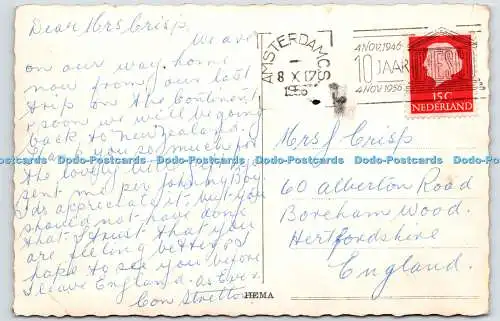 Dear Mrs Crisp,
We are
on our way home
now from our last
trip on the Continent
& soon we will be going
back to New Zealand.
Thank you so much for
the lovely
sent me per Johnny Boy.
I do appreciate it - but you
should not have done
that - I trust that you
are feeling better &
hope to see you before
I leave England. as Ever
Con Stretton
HEMA
AMSTERDAM C.S.
8 X 17
1956
4 NOV. 1946
10 JAAR UNESCO
4 NOV 1956
15 C
NEDERLAND
Mrs J Crisp
60 Alberton Road
Boreham Wood.
Hertfordshire
England.
Dodo-Postcards Dodo-Postcards Dodo-Postcards Dodo-Postcards Dodo-Postcards